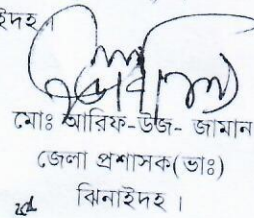 ইদহ।
মোঃ আরিফ-উজ- জামান
জেলা প্রশাসক(ভাঃ)
ঝিনাইদহ ।